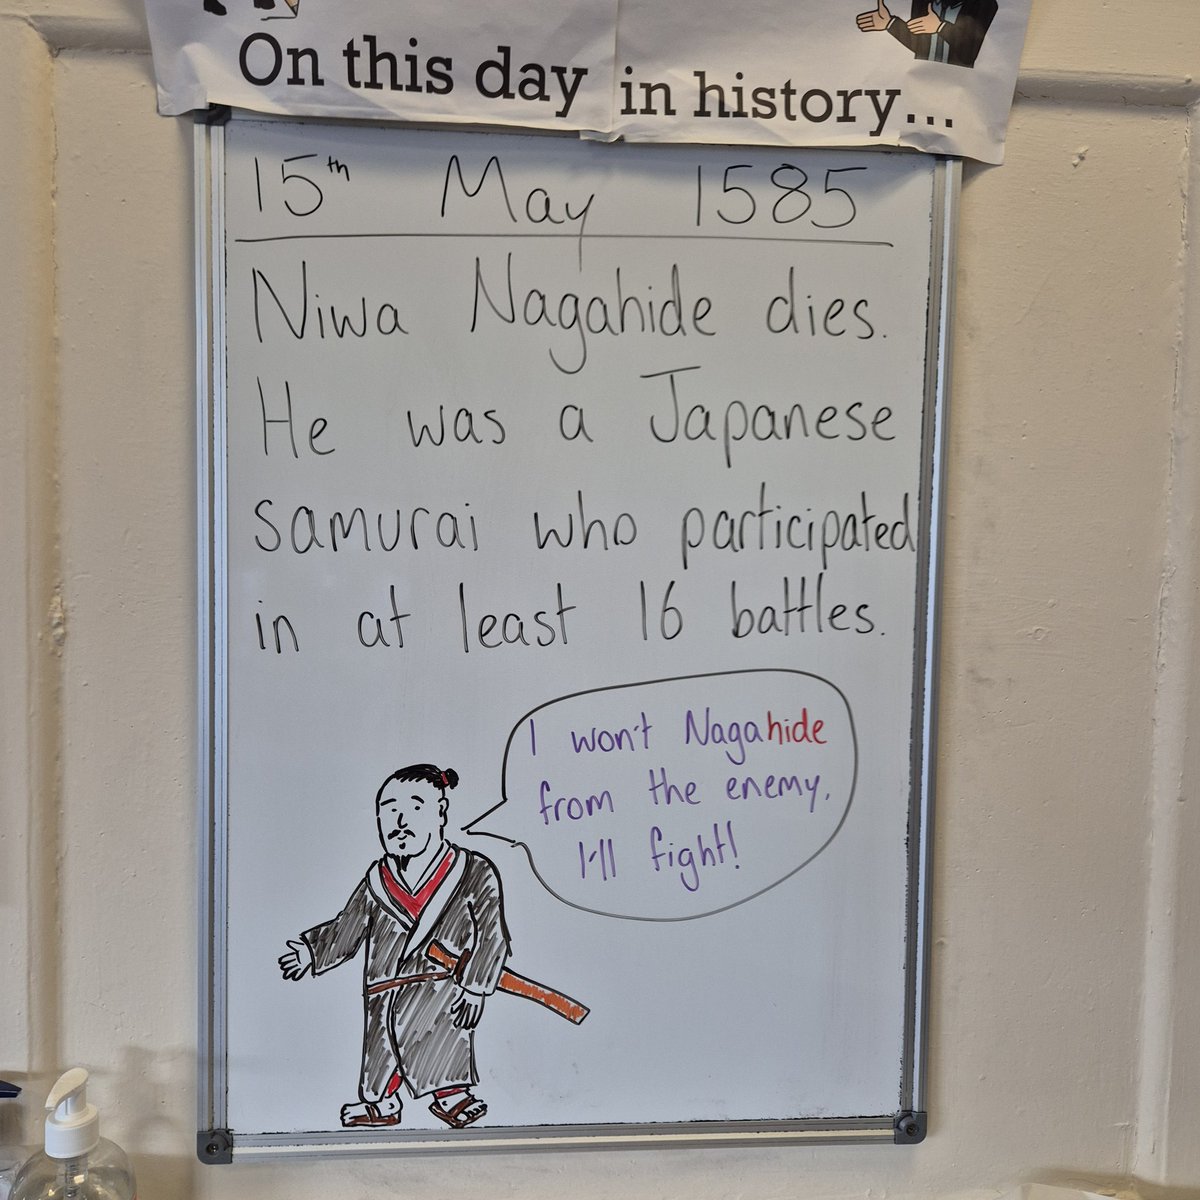 On this day in history...
15th May 1585
Niwa Nagahide dies.
He was a Japanese
samurai who participated
in at least 16 battles.
I won't Nagahide
from the enemy,
I'll fight!